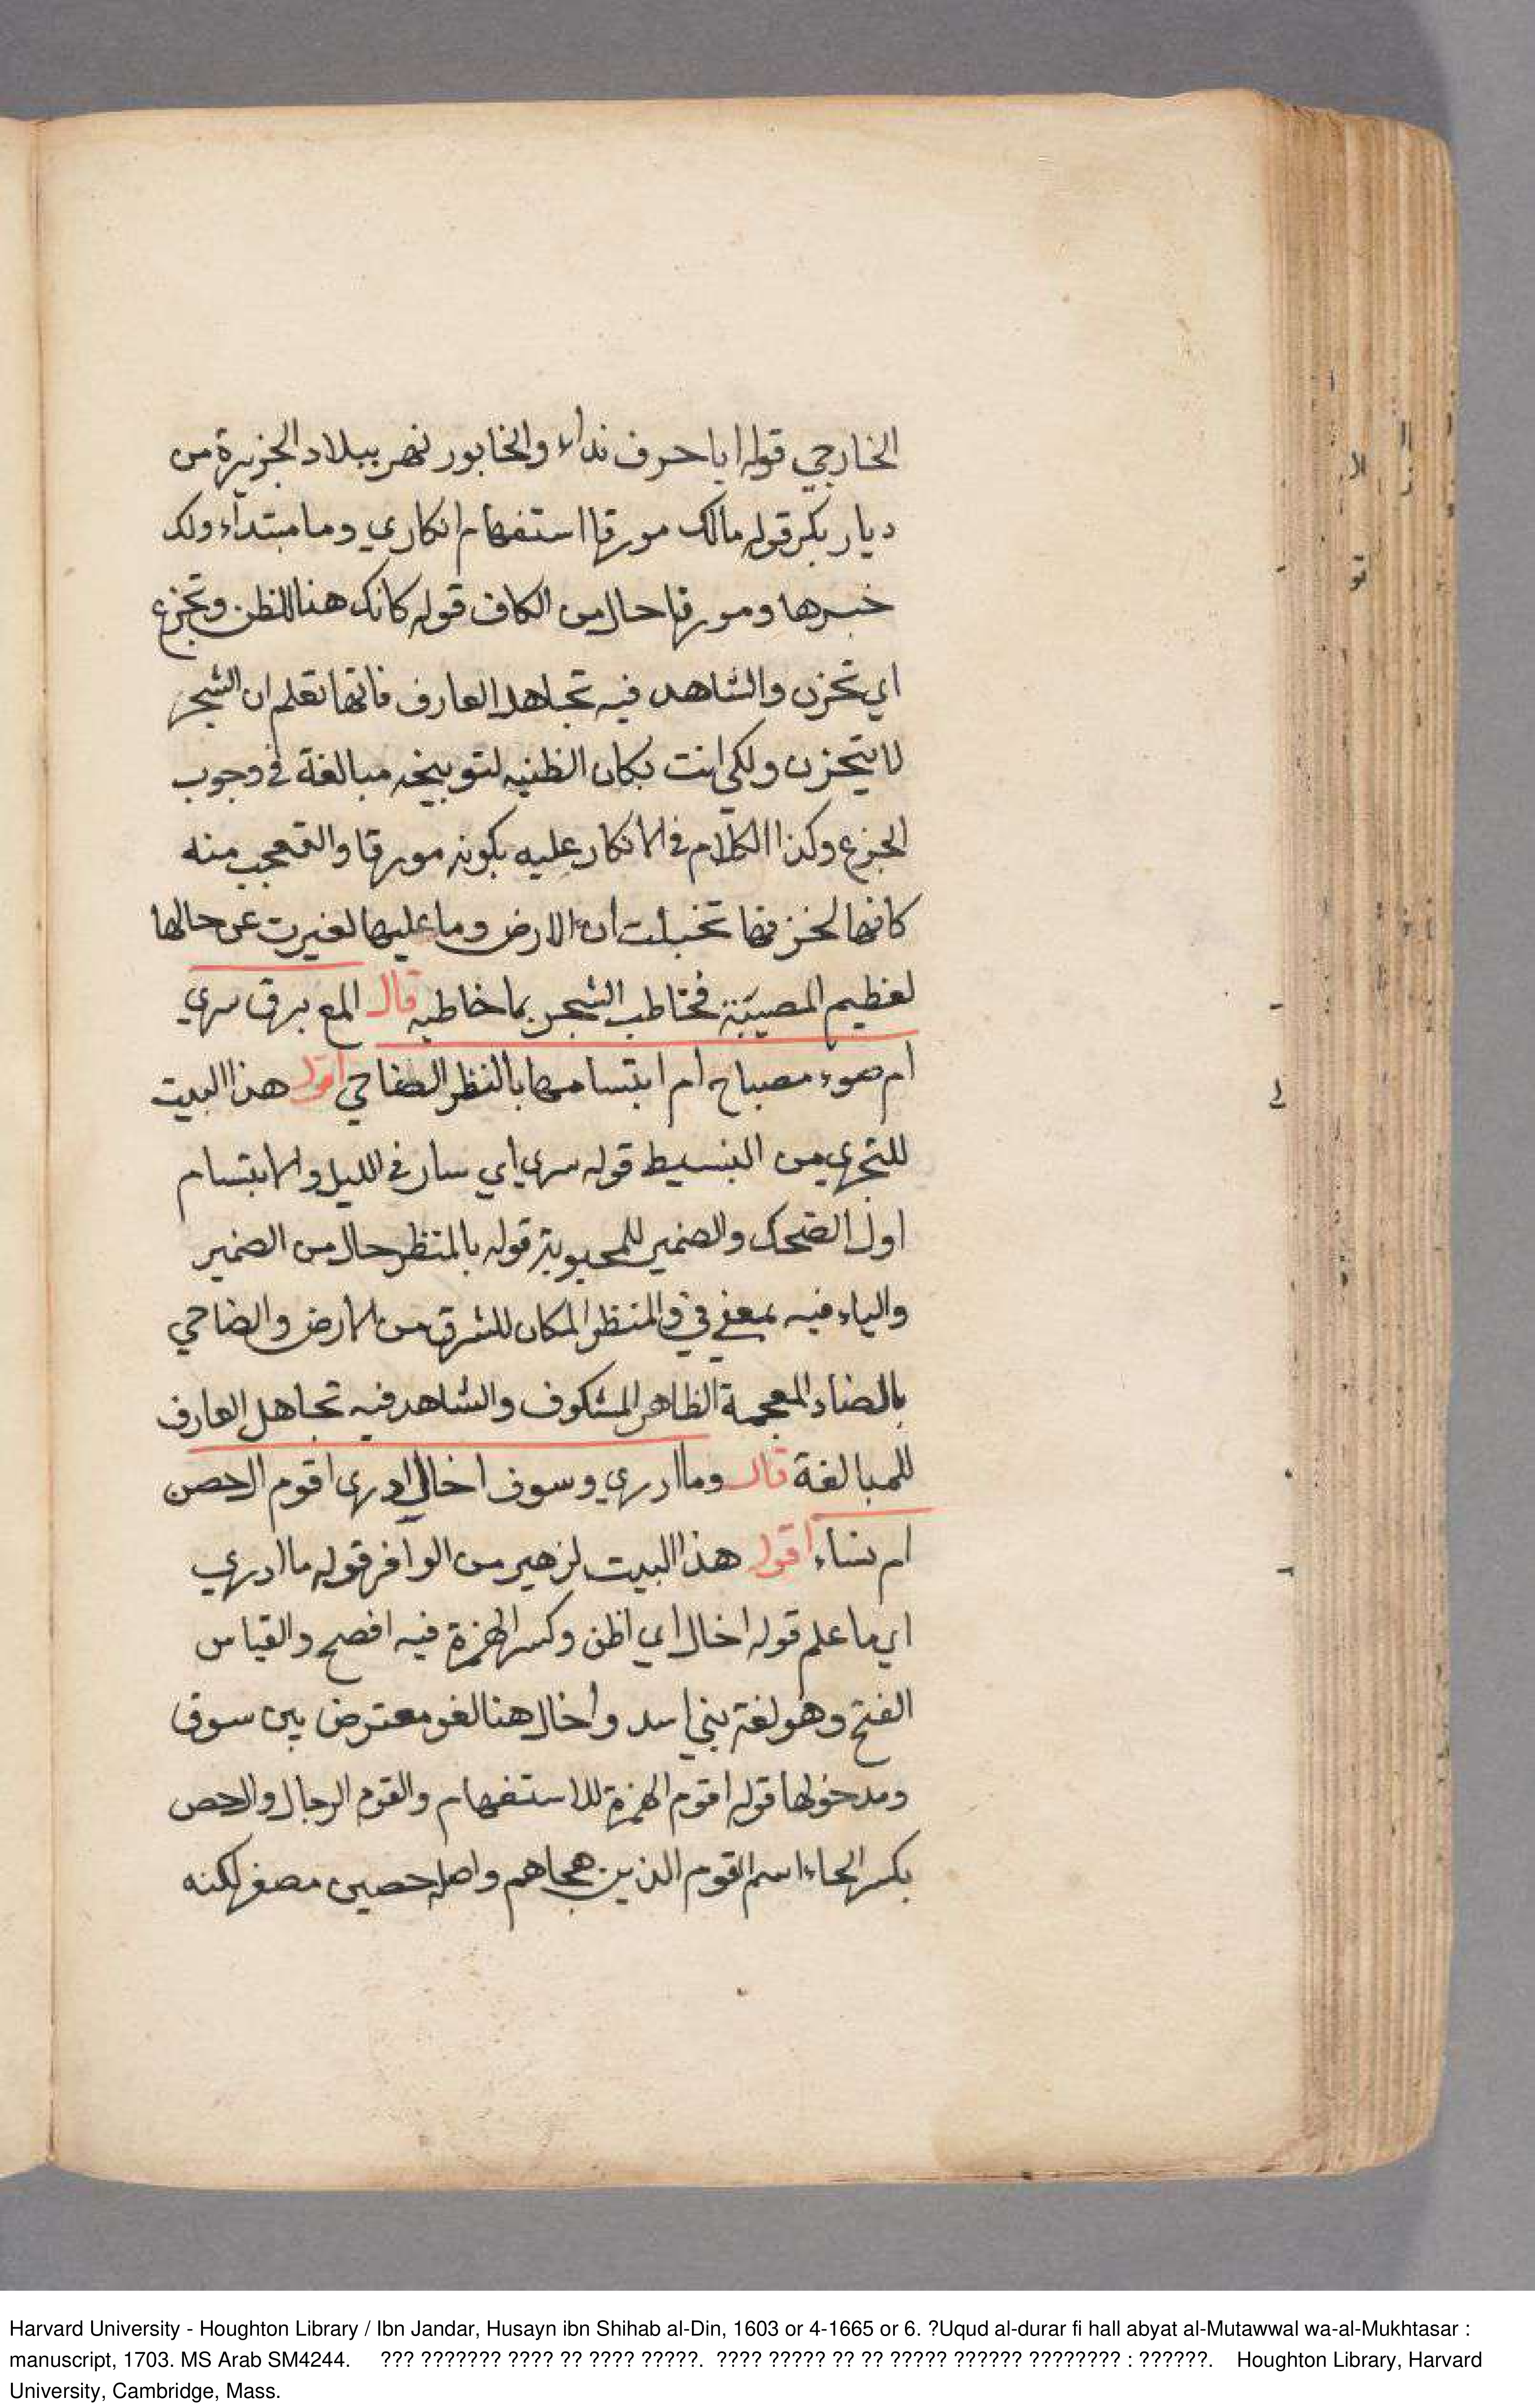 الخارجي قوله ايا حرف نداء والخابور نهر ببلاد الجزيرة من
ديار بكر قوله مالك مورقا استفهام انكاري وما مبتداء ولك
خبرها ومورقا حال من الكاف قوله كانك هنا للظن وتجزع
اي تحزن والشاهد فيه تجاهل العارف فانها تعلم ان الشجر
لا يتحزن ولكن اتت بكان الظنيه لتوبيخه مبالغة في وجوب
الجزع وكذا الكلام في الانكار عليه بكونه مورقا والتعجب منه
كانها لحزنها تخيلت ان الارض وما عليها تغيرت عن حالها
لعظيم المصيبة فخاطب الشجر بما خاطبه قال المع برق سري
ام ضوء مصباح ام ابتسامها بالنظر الضاحي اقول هذا البيت
للبحتري من البسيط قوله سري اي سار في الليل والابتسام
اول الضحك والضمير للمحبوبة قوله بالمنظر حال من الضمير
والباء فيه بمعني في والمنظر المكان للشرق من الارض والضاحي
بالضاد المعجمة الظاهر المشكوف والشاهد فيه تجاهل العارف
للمبالغة قال وما ادري وسوف اخال ادري اقوم ال حصن
ام نساء اقول هذا البيت لزهير من الوافر قوله ما ادري
اي ما علم قوله اخال اي اظن وكسر الهمزة فيه افصح والقياس
الفتح وهو لغة بني اسد واخال هنا لغو معترض بين سوف
ومدخولها قوله اقوم الهمزة للاستفهام والقوم الرجال وال حصن
بكسر الحاء اسم القوم الذين هجاهم واصله حصين مصغر لكنه
Harvard University - Houghton Library / Ibn Jandar, Husayn ibn Shihab al-Din, 1603 or 4-1665 or 6. ?Uqud al-durar fi hall abyat al-Mutawwal wa-al-Mukhtasar :
manuscript, 1703. MS Arab SM4244. ??? ??????? ???? ?? ???? ?????. ???? ????? ?? ?? ????? ?????? ???????? : ??????. Houghton Library, Harvard
University, Cambridge, Mass.